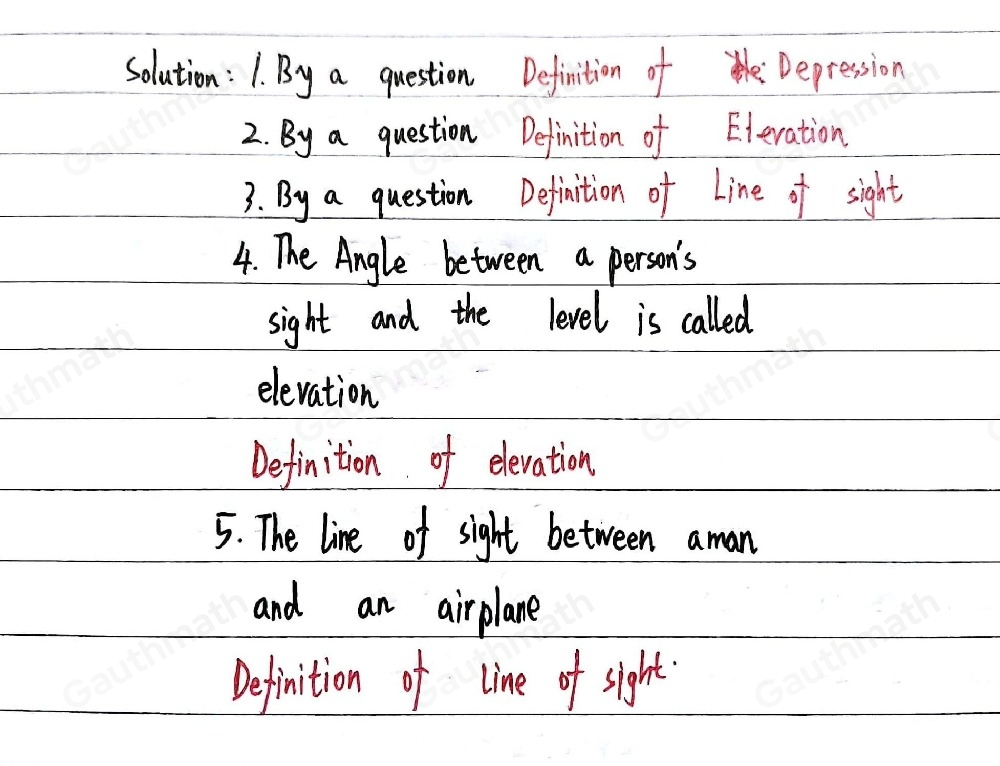 Solution: 1. By a question Definition of Depression
2. By a question Definition of Elevation
3. By a question Definition of Line of sight
4. The Angle between a person's
sight and the level is called
elevation
Definition of elevation
5. The line of sight between a man
and an airplane
Definition of line of sight.
Gauthmath
Gauthmath
Gauthmath
Gauthmath
Gauthmath
Gauthmath
Gauthmath
Gauthmath
Gauthmath